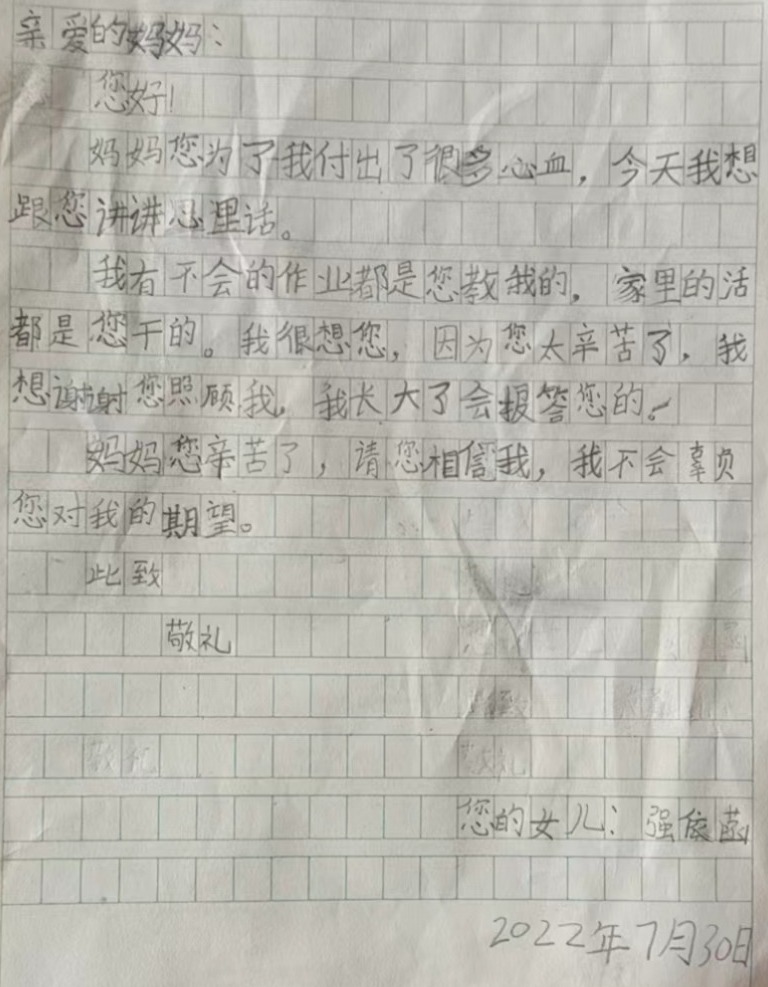 亲爱的妈妈：
您好！
妈妈您为了我付出了很多心血，今天我想
跟您讲讲心里话。
我有不会的作业都是您教我的，家里的活
都是您干的。我很想您，因为您太辛苦了，我
想谢谢您照顾我，我长大了会报答您的。
妈妈您辛苦了，请您相信我，我不会辜负
您对我的期望。
此致
敬礼
敬礼
敬礼
您的女儿：强依菡
2022年7月30日